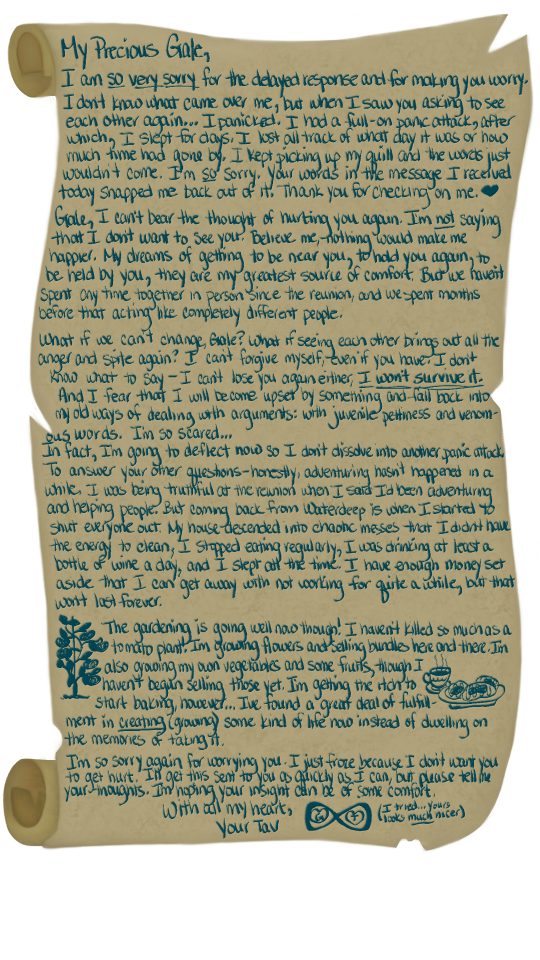 My Precious Gale,
I am so very sorry for the delayed response and for making you worry.
I don't know what came over me, but when I saw you asking to see
each other again... I panicked. I had a full-on panic attack, after
which, I slept for days. I lost all track of what day it was or how
much time had gone by. I kept picking up my quill and the words just
wouldn't come. I'm so sorry. Your words in the message I received
today snapped me back out of it. Thank you for checking on me. ♥
Gale, I can't bear the thought of hurting you again. I'm not saying
that I don't want to see you. Believe me, nothing would make me
happier. My dreams of getting to be near you, to hold you again, to
be held by you, they are my greatest source of comfort. But we haven't
spent any time together in person since the reunion, and we spent months
before that acting like completely different people.
What if we can't change, Gale? What if seeing each other brings out all the
anger and spite again? I can't forgive myself, even if you have. I don't
know what to say – I can't lose you again either, I won't survive it.
And I fear that I will become upset by something and fall back into
my old ways of dealing with arguments: with juvenile pettiness and venom-
ous words. I'm so scared...
In fact, I'm going to deflect now so I don't dissolve into another panic attack.
To answer your other questions – honestly, adventuring hasn't happened in a
while. I was being truthful at the reunion when I said I'd been adventuring
and helping people. But coming back from Waterdeep is when I started to
shut everyone out. My house descended into chaotic messes that I didn't have
the energy to clean, I stopped eating regularly, I was drinking at least a
bottle of wine a day, and I slept all the time. I have enough money set
aside that I can get away with not working for quite a while, but that
won't last forever.
The gardening is going well now though! I haven't killed so much as a
tomato plant! I'm growing flowers and selling bundles here and there. I'm
also growing my own vegetables and some fruits, though I
haven't begun selling those yet. I'm getting the itch to
start baking, however... I've found a great deal of fulfill-
ment in creating (growing) some kind of life now instead of dwelling on
the memories of taking it.
I'm so sorry again for worrying you. I just froze because I don't want you
to get hurt. I'll get this sent to you as quickly as I can, but please tell me
your thoughts. I'm hoping your insight can be of some comfort.
With all my heart,
Your Tav
(I tried... yours
looks much nicer)